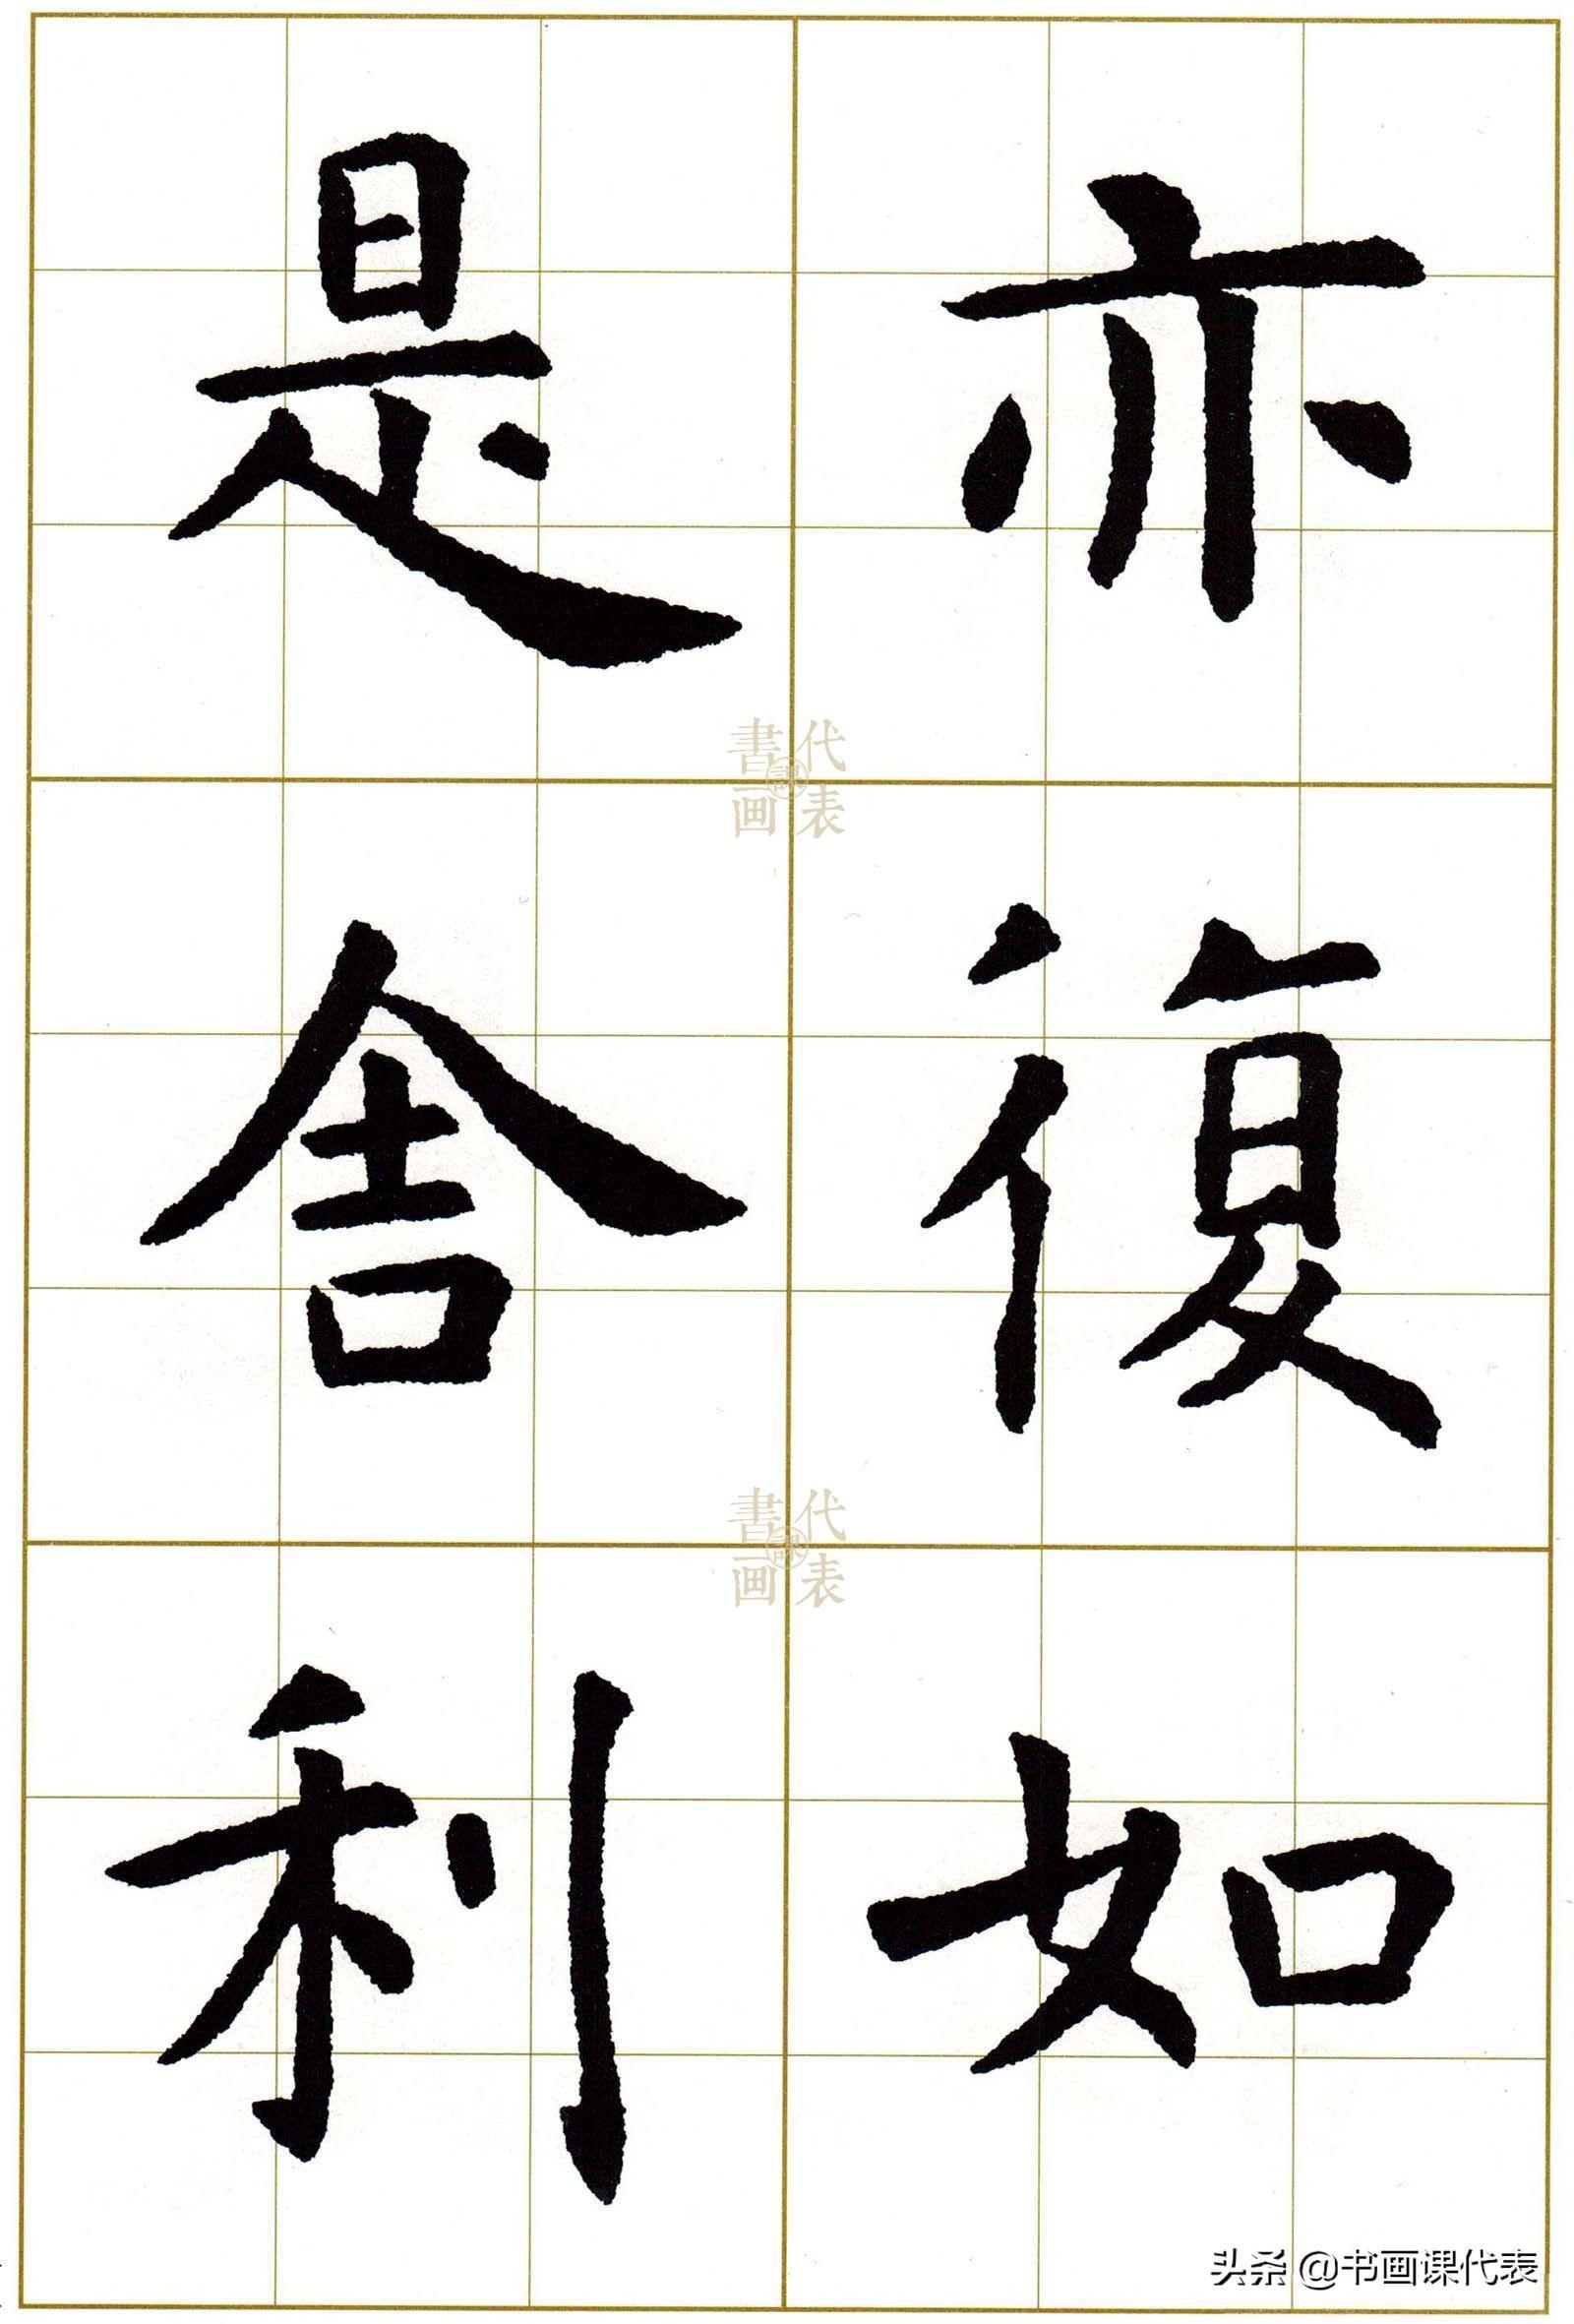 亦復如
是舍利
書画課代表
書画課代表
头条 @书画课代表